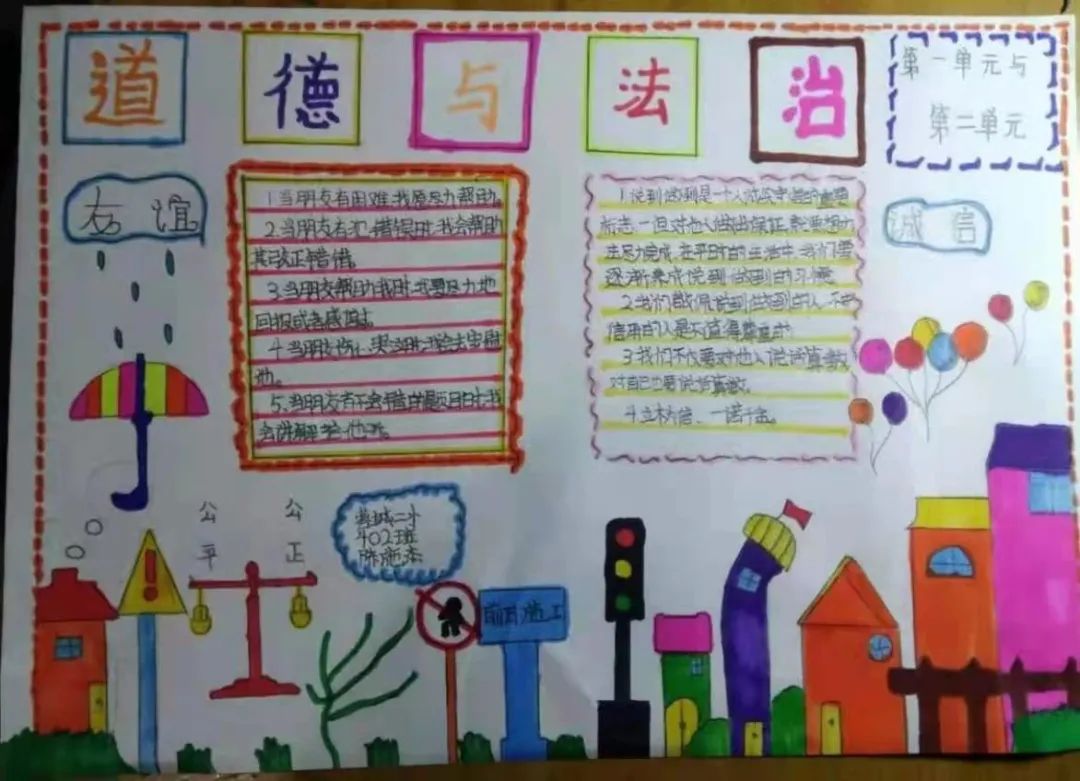 道德与法治
第一单元与
第二单元
友谊
1.当朋友有困难,我愿尽力帮助。
2.当朋友有犯错误时,我会帮助
其改正错误。
3.当朋友帮助我时,我要尽力地
回报或者感谢。
4.当朋友伤心哭泣时,我会去安慰
他。
5.当朋友有不会错的题目时,我
会讲解给他听。
诚信
1.说到做到是一个人诚实守信的重要
标志,一但对他人做出保证,就要想办
法尽力完成,在平日的生活中,我们要
逐渐养成说到做到的习惯
2.我们敬佩说到做到的人,不守
信用的人是不值得尊重的
3.我们不仅要对他人说话算数,
对自己也要说话算数。
4.立木为信、一诺千金。
公平
公正
城二小
402班
前方施工